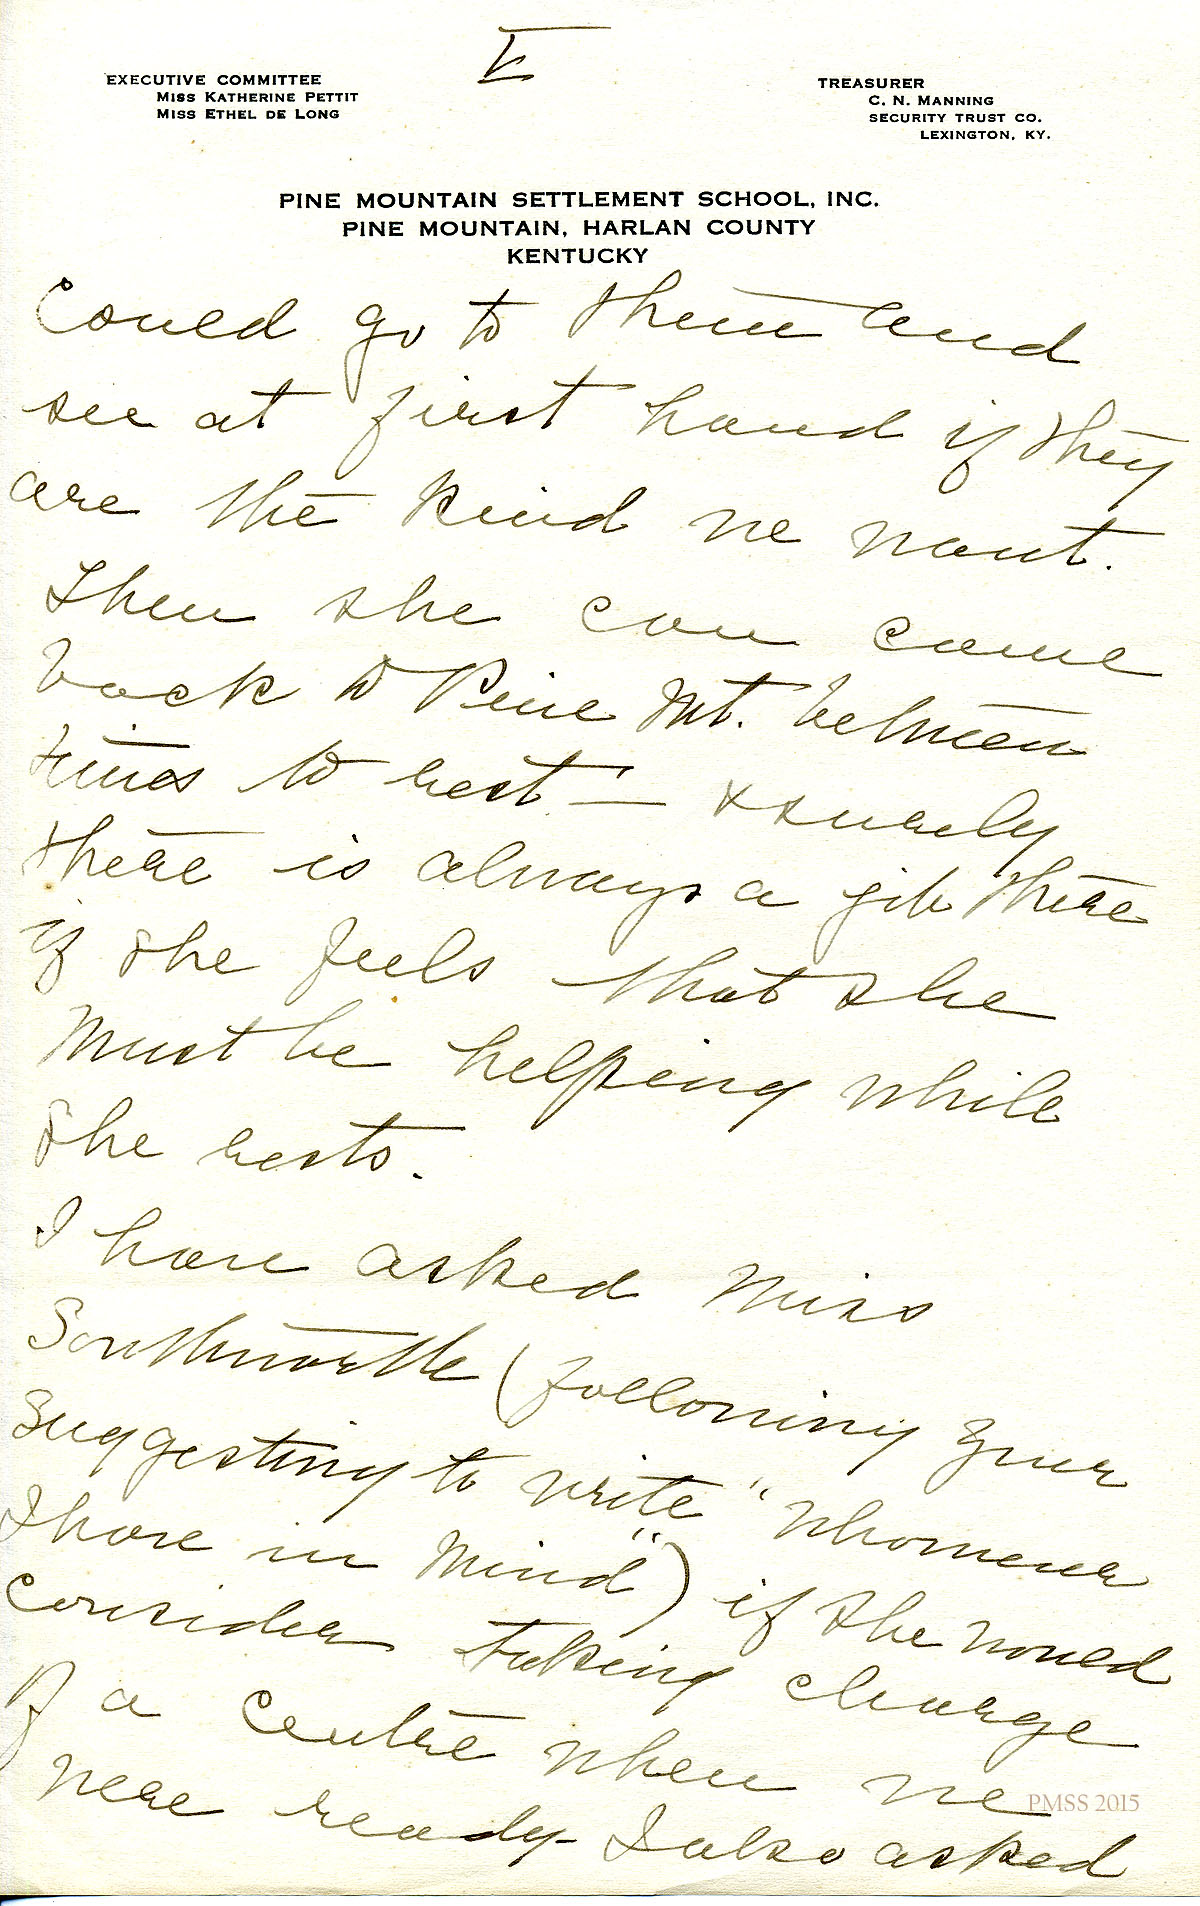 V
EXECUTIVE COMMITTEE
MISS KATHERINE PETTIT
MISS ETHEL DE LONG
TREASURER
C. N. MANNING
SECURITY TRUST CO.
LEXINGTON, KY.
PINE MOUNTAIN SETTLEMENT SCHOOL, INC.
PINE MOUNTAIN, HARLAN COUNTY
KENTUCKY
could go to them and
see at first hand if they
are the kind we want.
Then she can come
back to Pine Mt. between
times to rest — & surely
there is always a job there
if she feels that she
must be helping while
she rests.
I have asked Miss
Southworth (following your
suggesting to write "whomever
I have in mind") if she would
consider taking charge
of a centre when we
were ready - I also asked
PMSS 2015